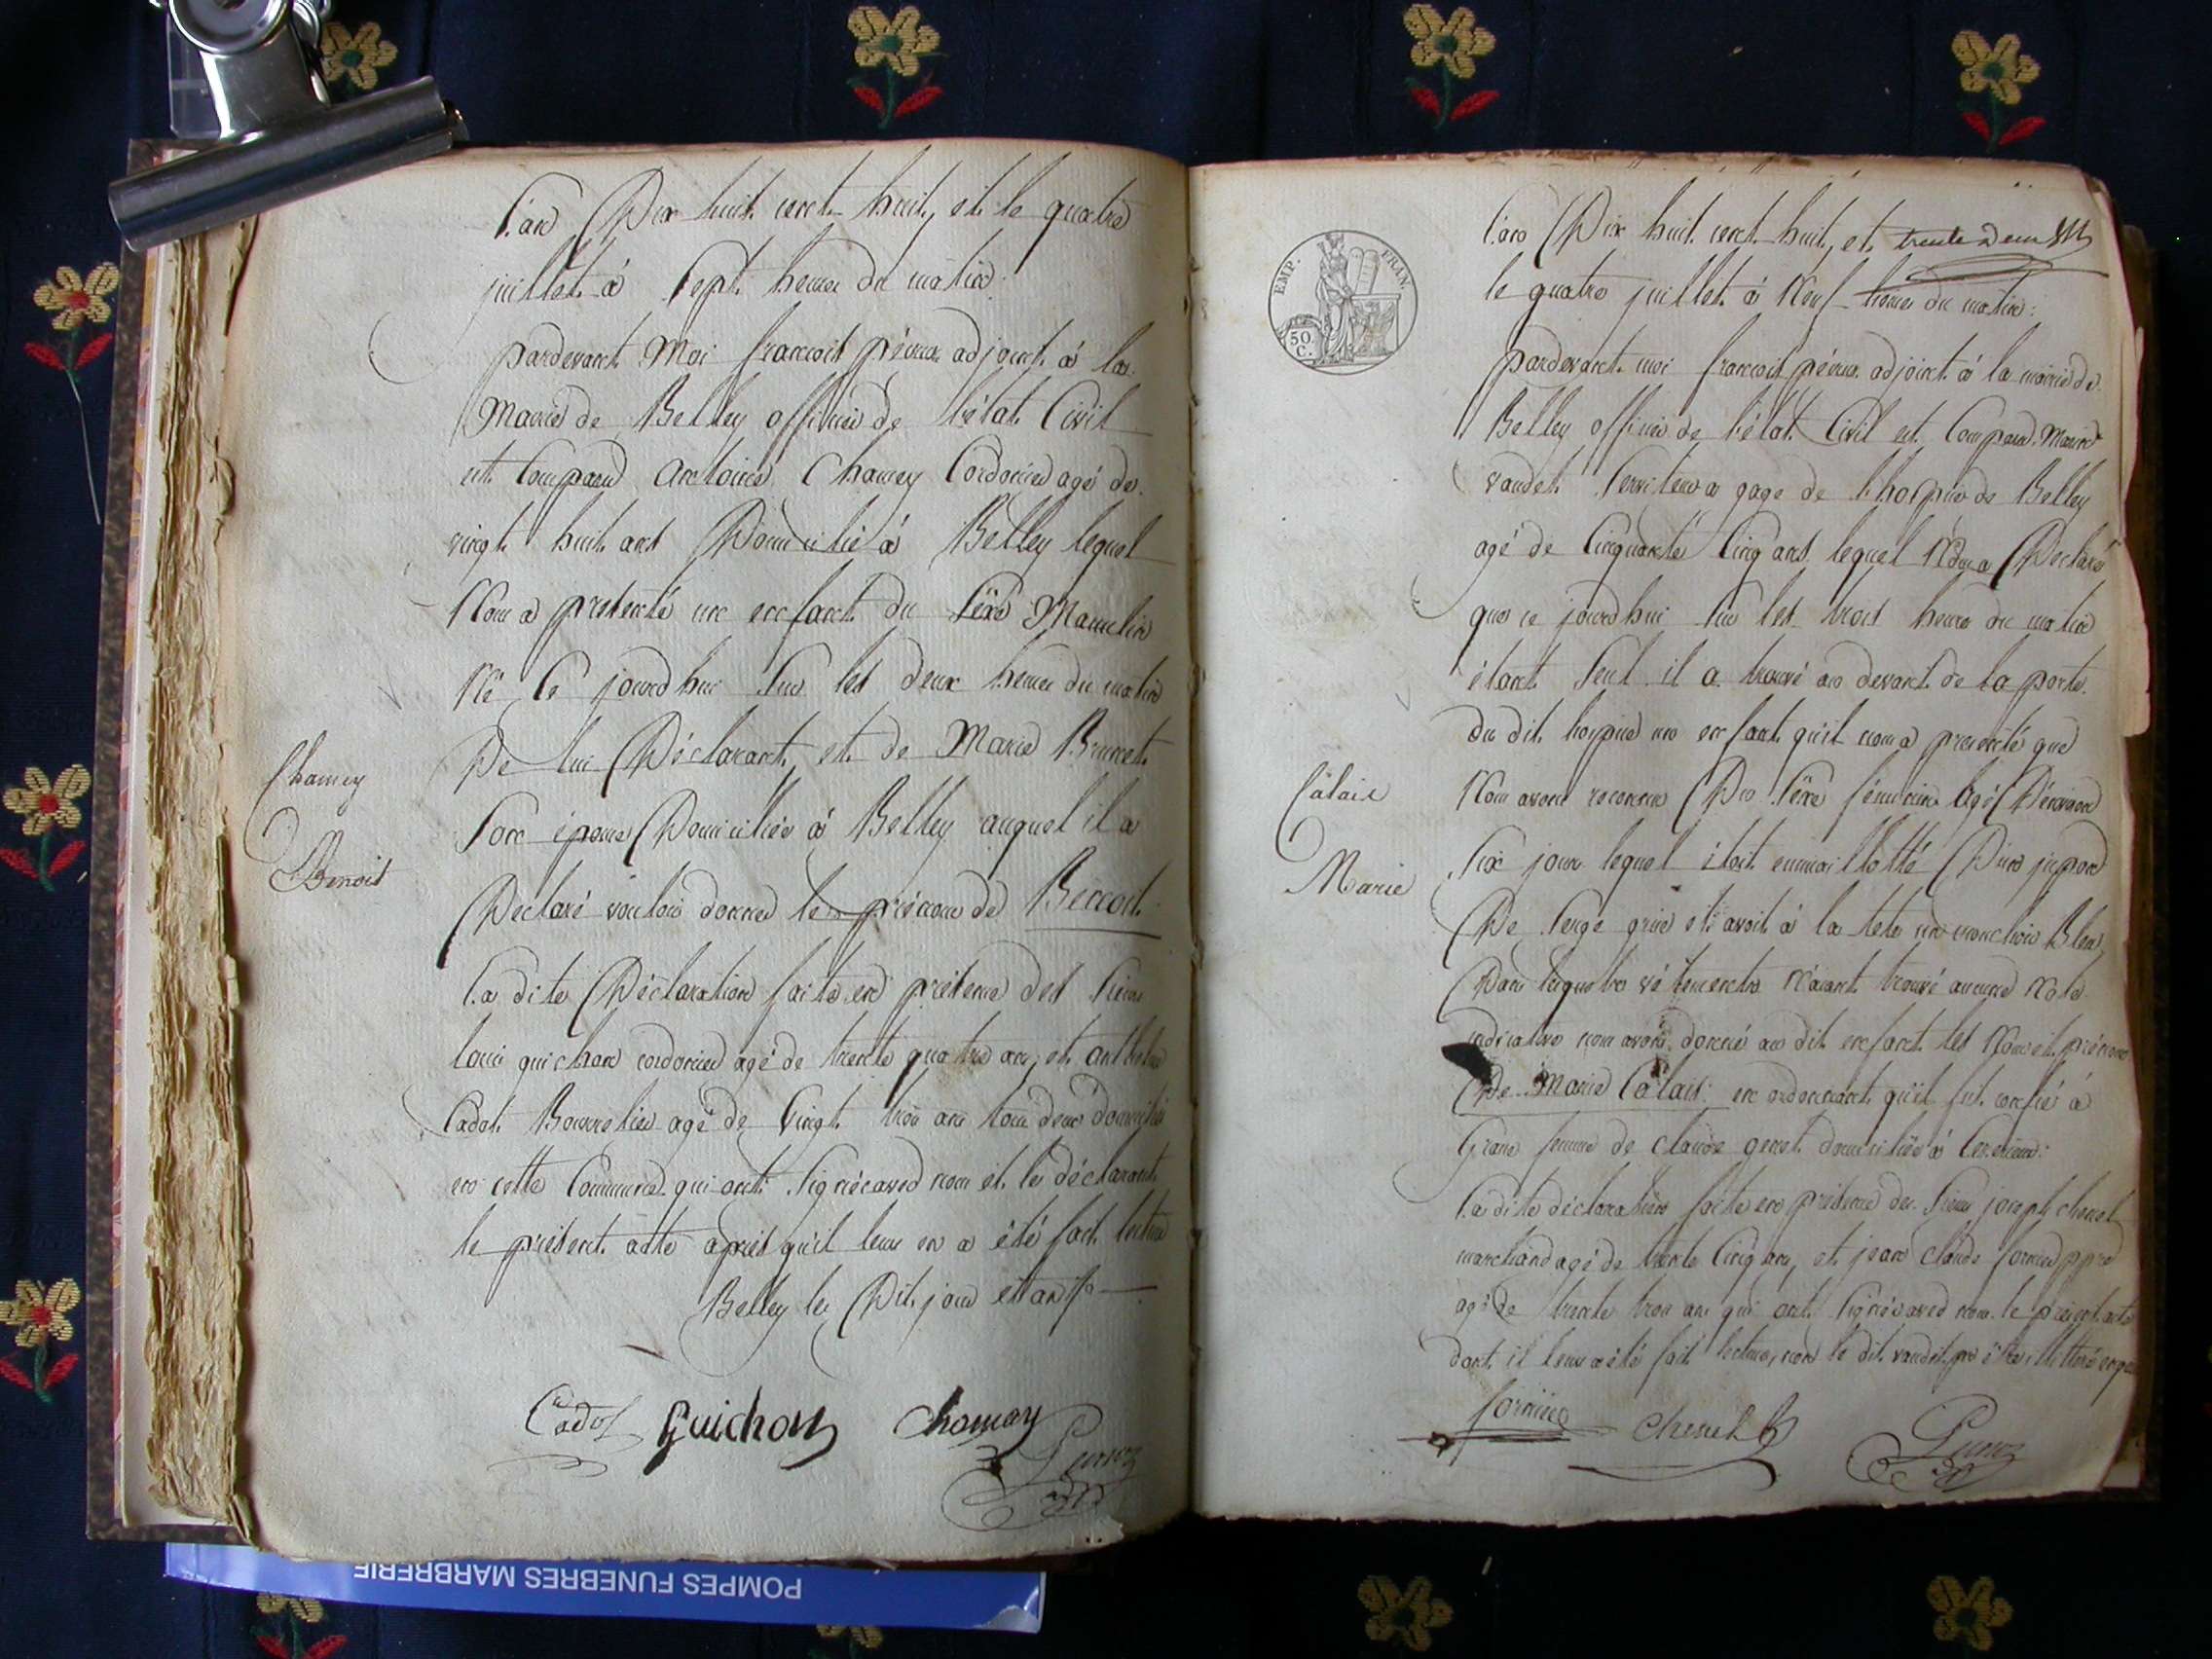 L'an Dix huit cent huit, et le quatre
juillet à Sept heures du matin.
pardevant Moi francois péroux adjoint à la
Mairie de Belley officier de l'état Civil
est Comparu Antoine Chamey Cordonier agé de
vingt huit ans Domicilié à Belley lequel
Nous a presenté un enfant du Sexe Masculin
Né Ce jourd'hui Sur les deux heures du matin
De lui Déclarant, et de Marie Brunet
Son épouse Domiciliée à Belley auquel il a
Déclaré vouloir donner le prénom de Benoit.
Chamey
Benoit
La dite Déclaration faite en présence des Sieurs
Louis guichon cordonier agé de trente quatre ans, et anthelme
Cadot Bourrelier agé de vingt trois ans tous deux domiciliés
en cette Commune qui ont Signé avec nous et le déclarant
le présent acte après qu'il leur en a été fait lecture
Belley les Dits jour et an
Cadot Guichon Chamay
EMP. FRAN.
50 C.
L'an Dix huit cent huit, et
le quatre juillet à Neuf heures du matin:
pardevant moi francois péroux adjoint à la mairie de
Belley officier de l'état Civil est Comparu
vaudet Serviteur a gage de l'hospice de Belley
agé de Cinquante Cinq ans lequel Nous a Déclaré
que ce jourd'hui Sur les trois heures du matin
étant Seul il a trouvé au devant de la porte
du dit hospice un enfant qu'il nous a presenté que
Nous avons reconnu Du Sexe féminin Agé D'environ
Six jours lequel étoit emmaillotté D'un jupon
De Serge grise et avoit à la tete un mouchoir Bleu
Dans lesquels vêtements N'aiant trouvé aucune Note
indicative nous avons donné au dit enfant les Nom et prénom
De Marie Calais: en ordonnant qu'il fut confié à
femme de Claude genet domiciliée à
Calais
Marie
La dite déclaration faite en présence des Sieurs joseph chenet
marchand agé de trente Cinq ans, et jean Claude fornier ppre
agé de trente trois ans qui ont Signé avec nous le présent acte
dont il leur a été fait lecture, non le dit vaudet pr être illitéré
fornier chenet
POMPES FUNEBRES MARBRERIE